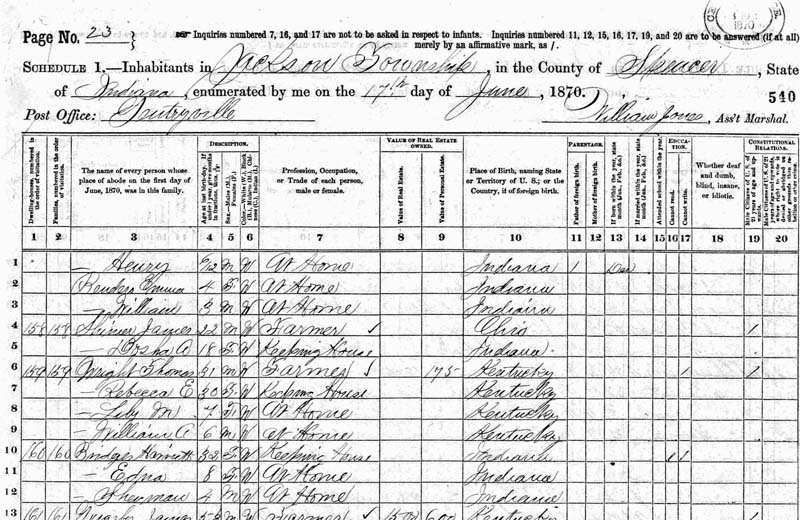 Page No. 23 Inquiries numbered 7, 16, and 17 are not to be asked in respect to infants. Inquiries numbered 11, 12, 15, 16, 17, 19, and 20 are to be answered (if at all)
merely by an affirmative mark, as /.
SCHEDULE 1.—Inhabitants in Jackson Township, in the County of Spencer, State
of Indiana, enumerated by me on the 17th day of June, 1870. 540
Post Office: Gentryville William Jones, Ass't Marshal.
Dwelling-houses, numbered in the order of visitation.
Families, numbered in the order of visitation.
The name of every person whose place of abode on the first day of June, 1870, was in this family.
DESCRIPTION.
Profession, Occupation, or Trade of each person, male or female.
VALUE OF REAL ESTATE OWNED.
Value of Real Estate.
Value of Personal Estate.
Place of Birth, naming State or Territory of U. S.; or the Country, if of foreign birth.
PARENTAGE.
Father of foreign birth.
Mother of foreign birth.
If born within the year, state month (Jan., Feb., &c.)
If married within the year, state month (Jan., Feb., &c.)
Attended school within the year.
EDUCATION.
Cannot read.
Cannot write.
Whether deaf and dumb, blind, insane, or idiotic.
CONSTITUTIONAL RELATIONS.
1 2 3 4 5 6 7 8 9 10 11 12 13 14 15 16 17 18 19 20
1 — Henry 6/12 M W At Home Indiana 1 Dec
2 Emma 4 F W At Home Indiana
3 — William 3 M W At Home Indiana
4 158 158 James 22 M W Farmer Ohio 1
5 — A 18 F W Keeping House Indiana
6 159 159 Wright Thomas M W Farmer 175 Kentucky 1 1
7 — Rebecca E 30 F W Keeping House Kentucky
8 — Lily M 7 F W At Home Kentucky
9 — William A 6 M W At Home Kentucky
10 160 160 Bridges Harriett 32 F W Keeping House Indiana 1 1
11 — Edna 8 F W At Home Indiana
12 — Sherman 4 M W At Home Indiana
13 161 161 James M W Farmer 1500 600 Kentucky